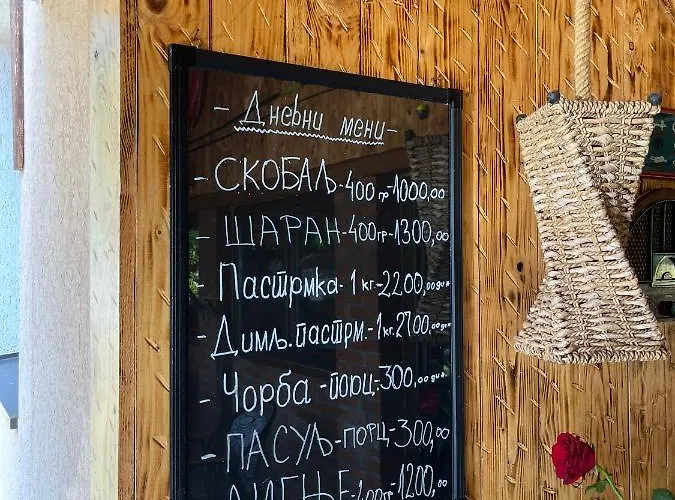 - Дневни мени -
- СКОБАЉ - 400 гр - 1000,00
- ШАРАН - 400 гр - 1300,00
- Пастрмка - 1 кг. - 2200,00 дин.
- Димљ. пастрм. - 1 кг. 2700,00 дин.
- Чорба - порц. - 300,00 дин.
- ПАСУЉ - ПОРЦ - 300,00
1200,00